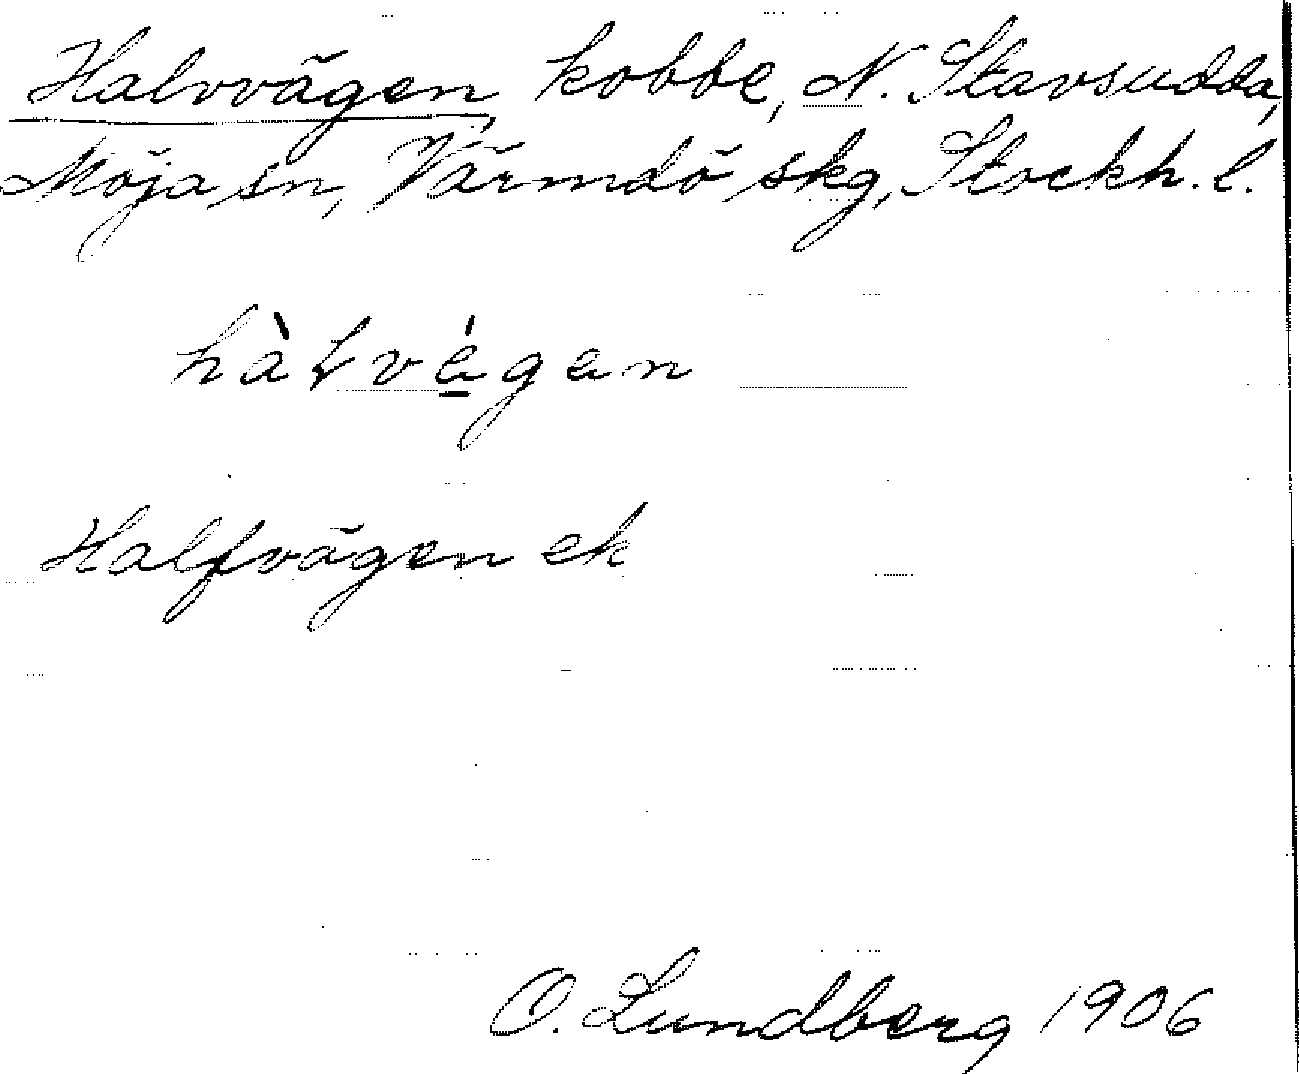 Halvvägen, kobbe, N. Stavsudda,
Möja sn, Värmdö skg, Stockh. l.
hàłvǻgen
Halfvägen ek
O. Lundberg 1906